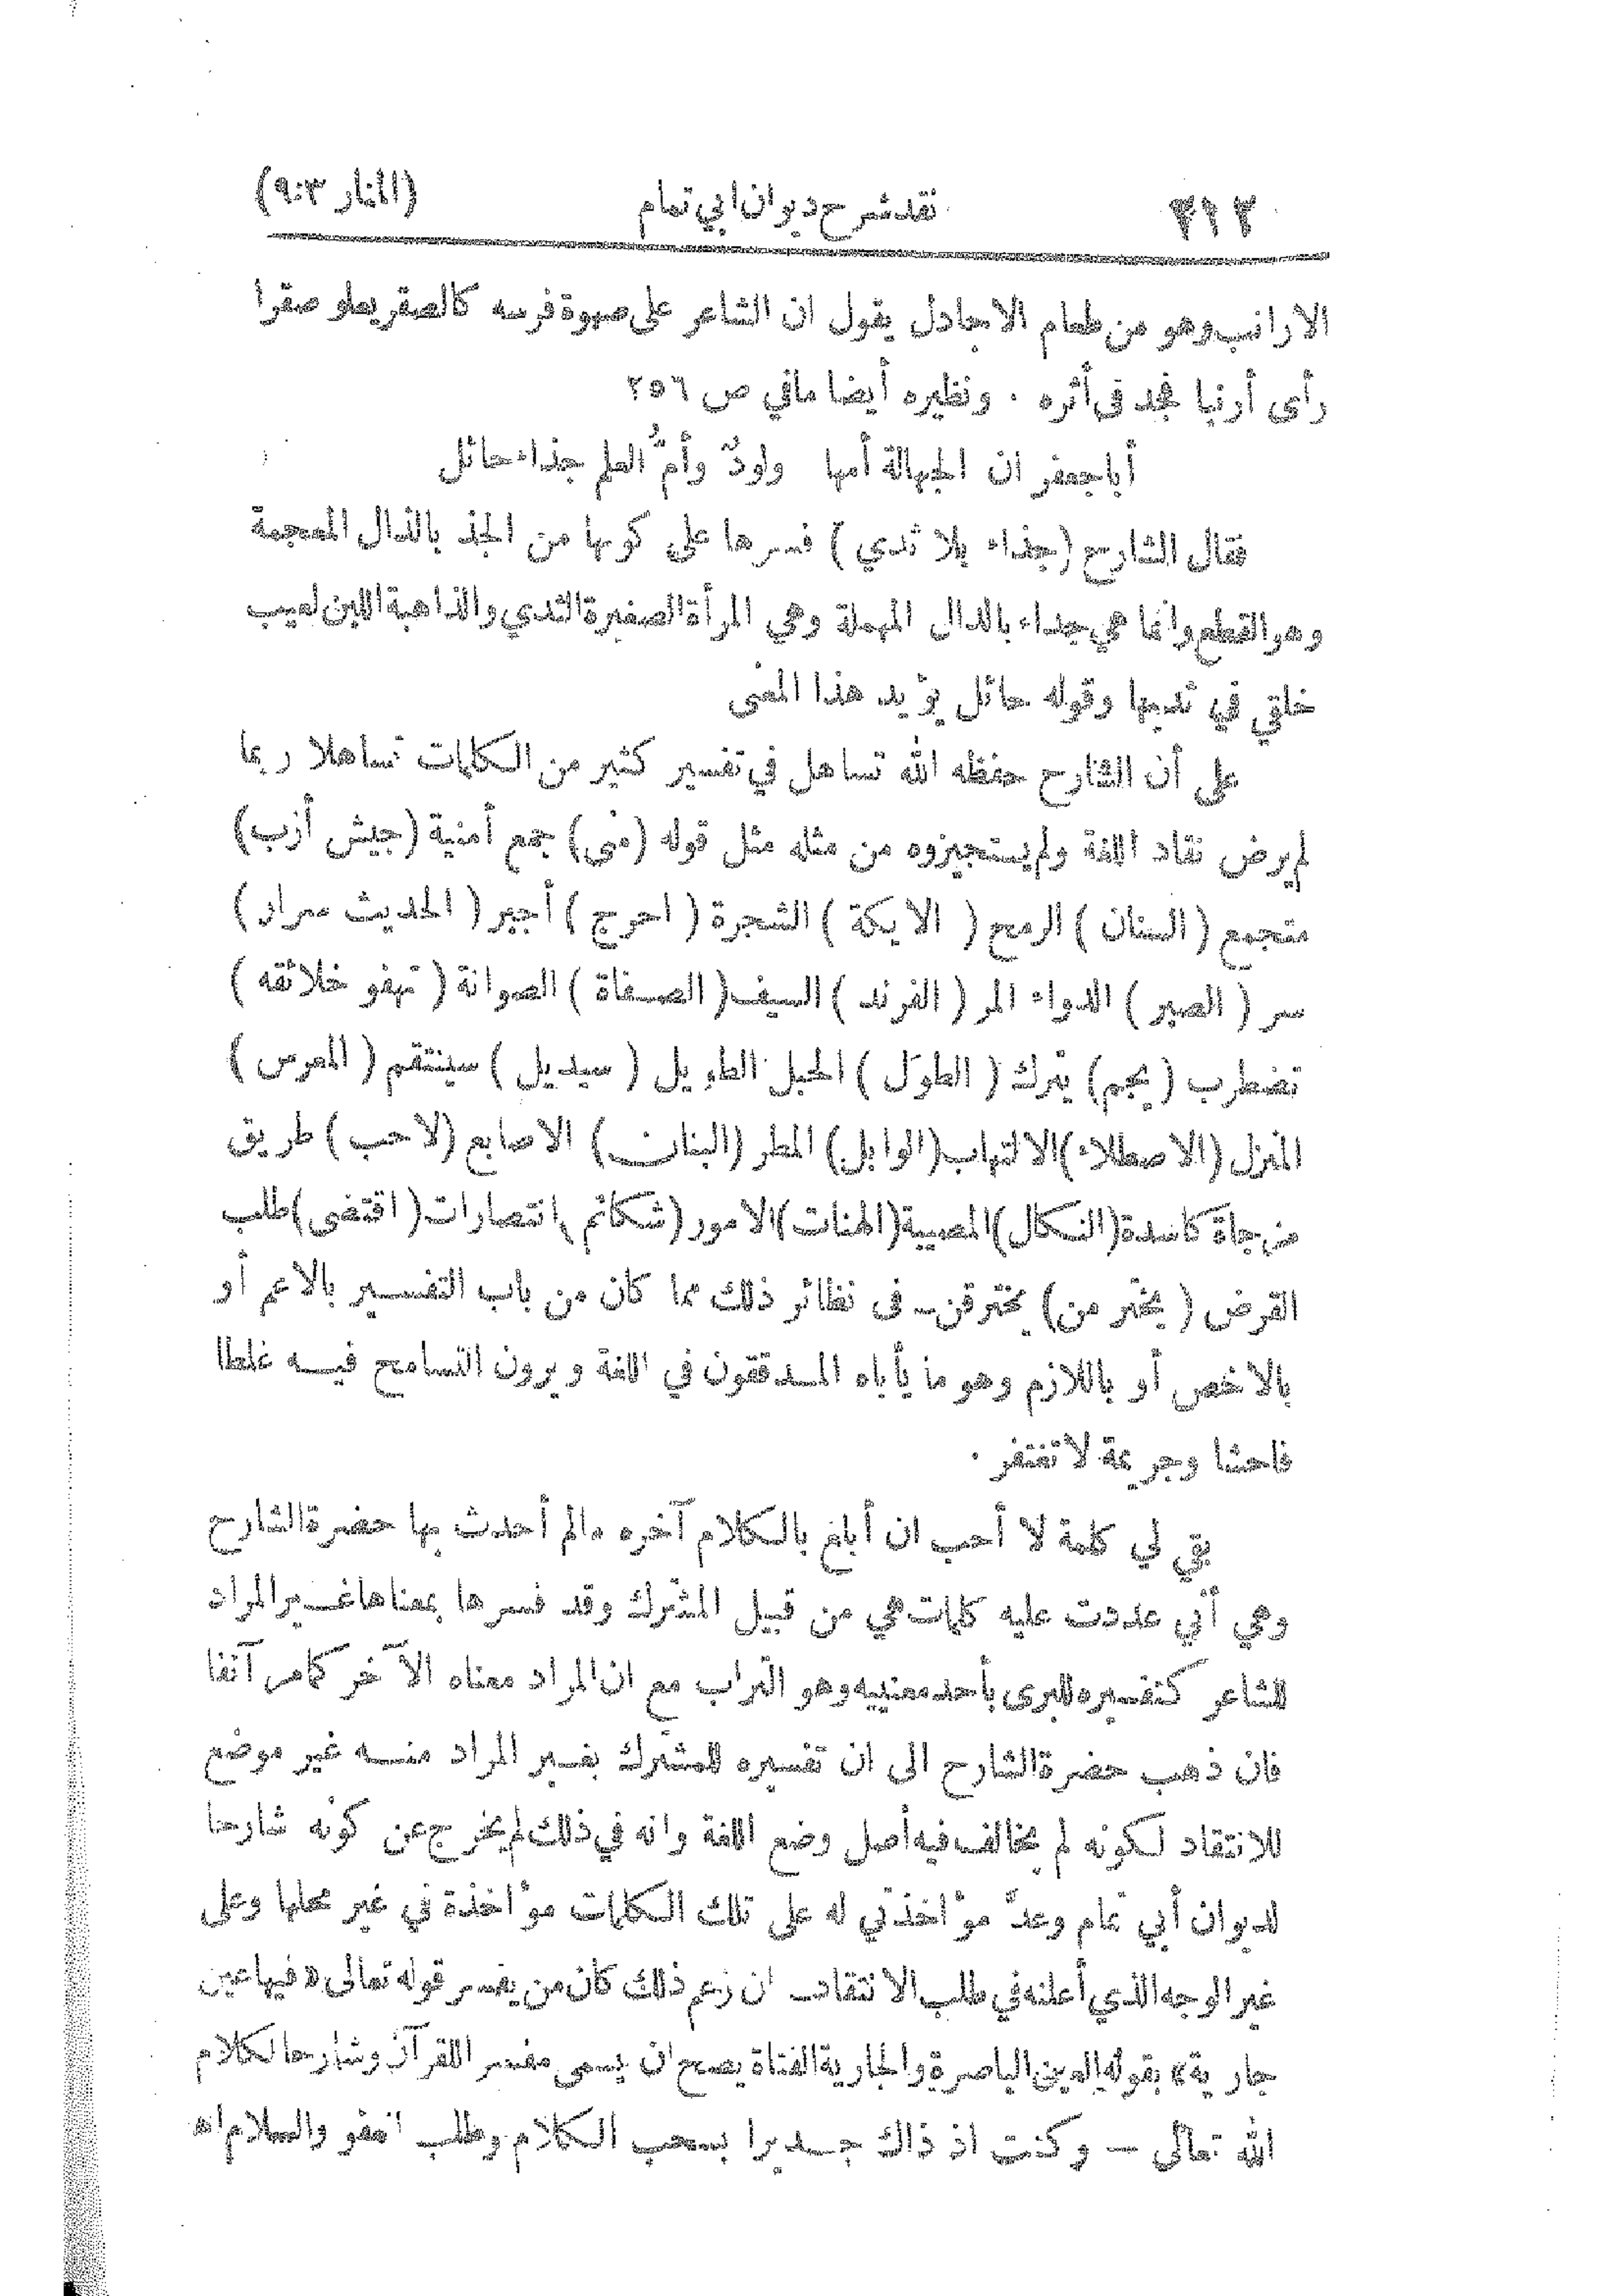 ٢١٢ نقد شرح ديوان ابي تمام (المنار ٩:٣)
الارانب وهو من طعام الاجادل يقول ان الشاعر على صهوة فرسه كالصقر يعلو صقرا
رأى أرنبا فجد فى أثره . ونظيره أيضا مافي ص ٢٥٦
أباجعفر ان الجهالة أمها ولودٌ وأمُّ العلم جذاء حائل
فقال الشارح (جذاء بلا ثدي) ففسرها على كونها من الجذ بالذال المعجمة
وهو القطع وانما هي جداء بالدال المهملة وهي المرأة الصغيرة الثدي والذاهبة اللبن لعيب
خلقي في ثديها وقوله حائل يؤيد هذا المعنى
على أن الشارح حفظه الله تساهل في تفسير كثير من الكلمات تساهلا ربما
لم يرض نقاد اللغة ولم يستجيزوه من مثله مثل قوله (منى) جمع أمنية (جيش أزب)
متجمع (السنان) الرمح (الايكة) الشجرة (احرج) أجبر (الحديث سرار)
سر (الصبر) الدواء المر (الفرند) السيف (الصفاة) الصوانة (تهفو خلائقه)
تضطرب (يجم) يترك (الطوَل) الحبل الطويل (سيديل) سينتقم (المعرس)
المنزل (الاصطلاء) الالتهاب (الوابل) المطر (البنان) الاصابع (لاحب) طريق
مزجاة كاسدة (النكال) المصيبة (الهنات) الامور (شكائم) انتصارات (اقتضى) طلب
القرض (يخترمن) يخترقن ــ فى نظائر ذلك مما كان من باب التفسير بالاعم أو
بالاخص أو باللازم وهو ما يأباه المدققون في اللغة ويرون التسامح فيه غلطا
فاحشا وجريمة لاتغتفر .
بقي لي كلمة لا أحب ان أبلغ بالكلام آخره مالم أحدث بها حضرة الشارح
وهي أني عددت عليه كلمات هي من قبيل المشترك وقد فسرها بمعناها غير المراد
للشاعر كتفسيره للبرى بأحد معنييه وهو التراب مع ان المراد معناه الآخر كما مر آنفا
فان ذهب حضرة الشارح الى ان تفسيره للمشترك بغير المراد منه غير موضع
للانتقاد لكونه لم يخالف فيه أصل وضع اللغة وانه في ذلك لم يخرج عن كونه شارحا
لديوان أبي تمام وعدَّ مؤاخذتي له على تلك الكلمات مؤاخذة في غير محلها وعلى
غير الوجه الذي أعلنه في طلب الانتقاد ــ ان زعم ذلك كان من يفسر قوله تعالى «فيها عين
جارية» بقوله العين الباصرة والجارية الفتاة يصح ان يسمى مفسرا للقرآن وشارحا لكلام
الله تعالى — وكنت اذ ذاك جديرا بسحب الكلام وطلب العفو والسلام اه